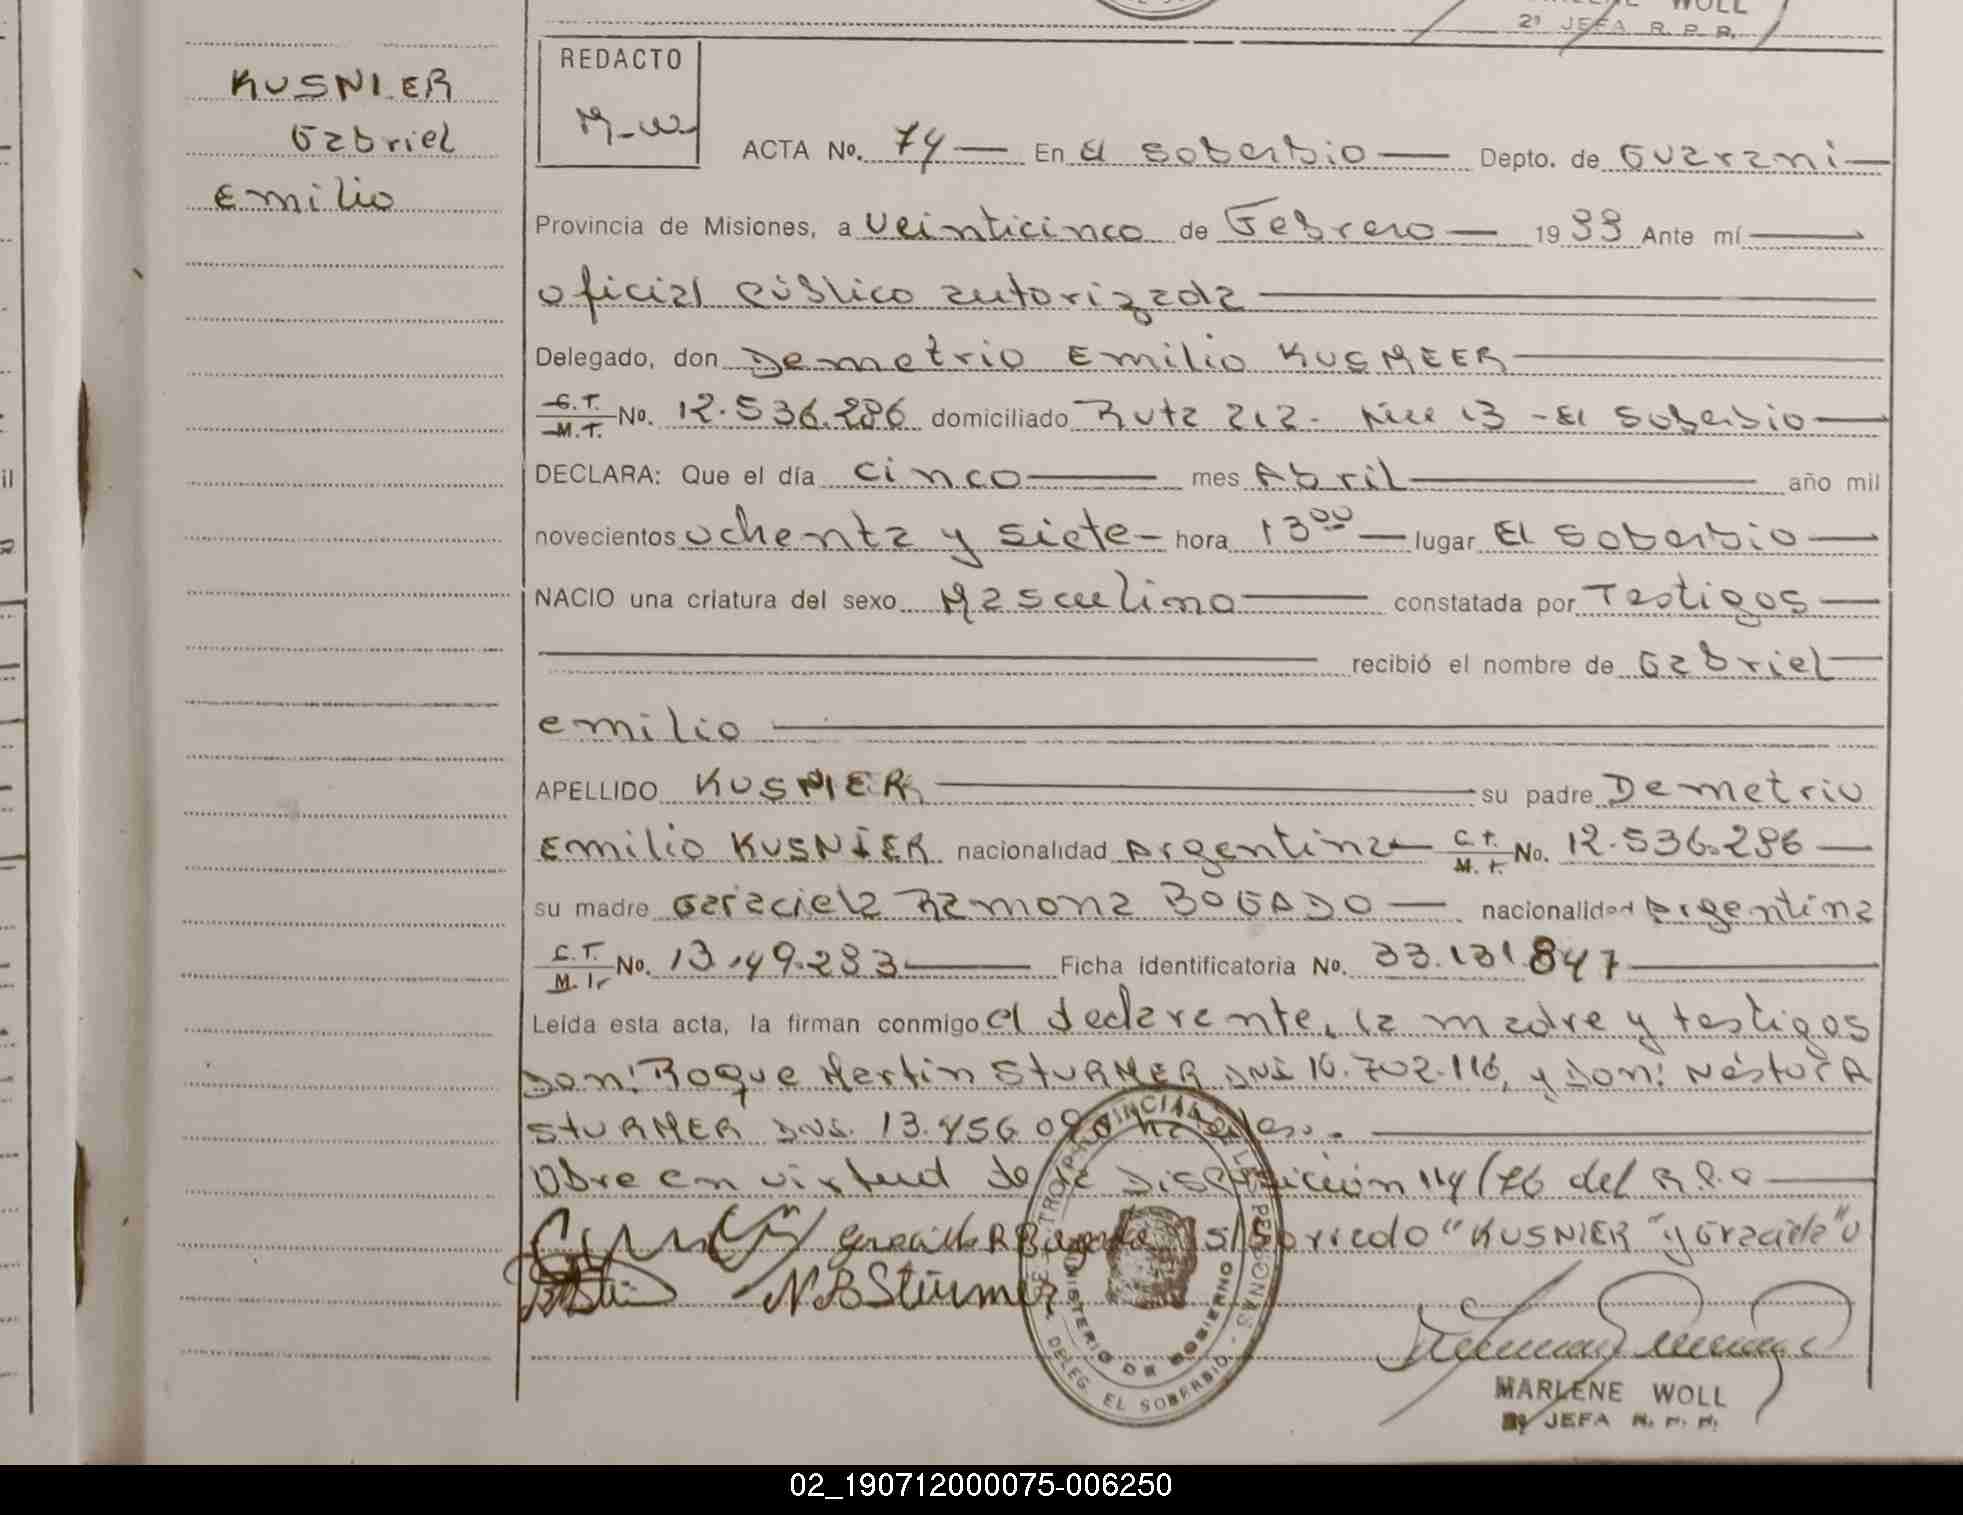 WOLL
2º JEFA R. P. P.
KUSNIER
Gabriel
Emilio
REDACTO
M-W
ACTA No. 74 — En El Soberbio — Depto. de Guarani —
Provincia de Misiones, a veinticinco de Febrero — 1999 Ante mí —
oficial público autorizada —
Delegado, don Demetrio Emilio KUSMEER —
C.T. M.T. No. 12.536.286 domiciliado Ruta 212 - Km 13 - El Soberbio —
DECLARA: Que el día cinco — mes Abril — año mil
novecientos ochenta y siete - hora 13 00 — lugar El Soberbio —
NACIO una criatura del sexo Masculino — constatada por Testigos —
recibió el nombre de Gabriel —
emilio —
APELLIDO KUSNIER — su padre Demetrio
Emilio KUSNIER nacionalidad Argentina — C.T. M.I. No. 12.536.286 —
su madre Graciela Ramona BOGADO — nacionalidad Argentina
C.T. M.I. No. — Ficha identificatoria No. 33.131.847 —
Leída esta acta, la firman conmigo el declarante, la madre y testigos
Don: Roque Martin STURMER DNI 16.702.116, y Don: Néstor A
STURMER DNI. 13.856
Obre en virtud de la Disposición 114/76 del R.P.
Graciela R Bogado S/Borrado "KUSNIER" y Graciela"
N A Stürmer
REGISTRO PROVINCIAL DE LAS PERSONAS - DELEG. EL SOBERBIO -
MINISTERIO DE GOBIERNO
MARLENE WOLL
2ª JEFA R. P. P.
02_190712000075-006250